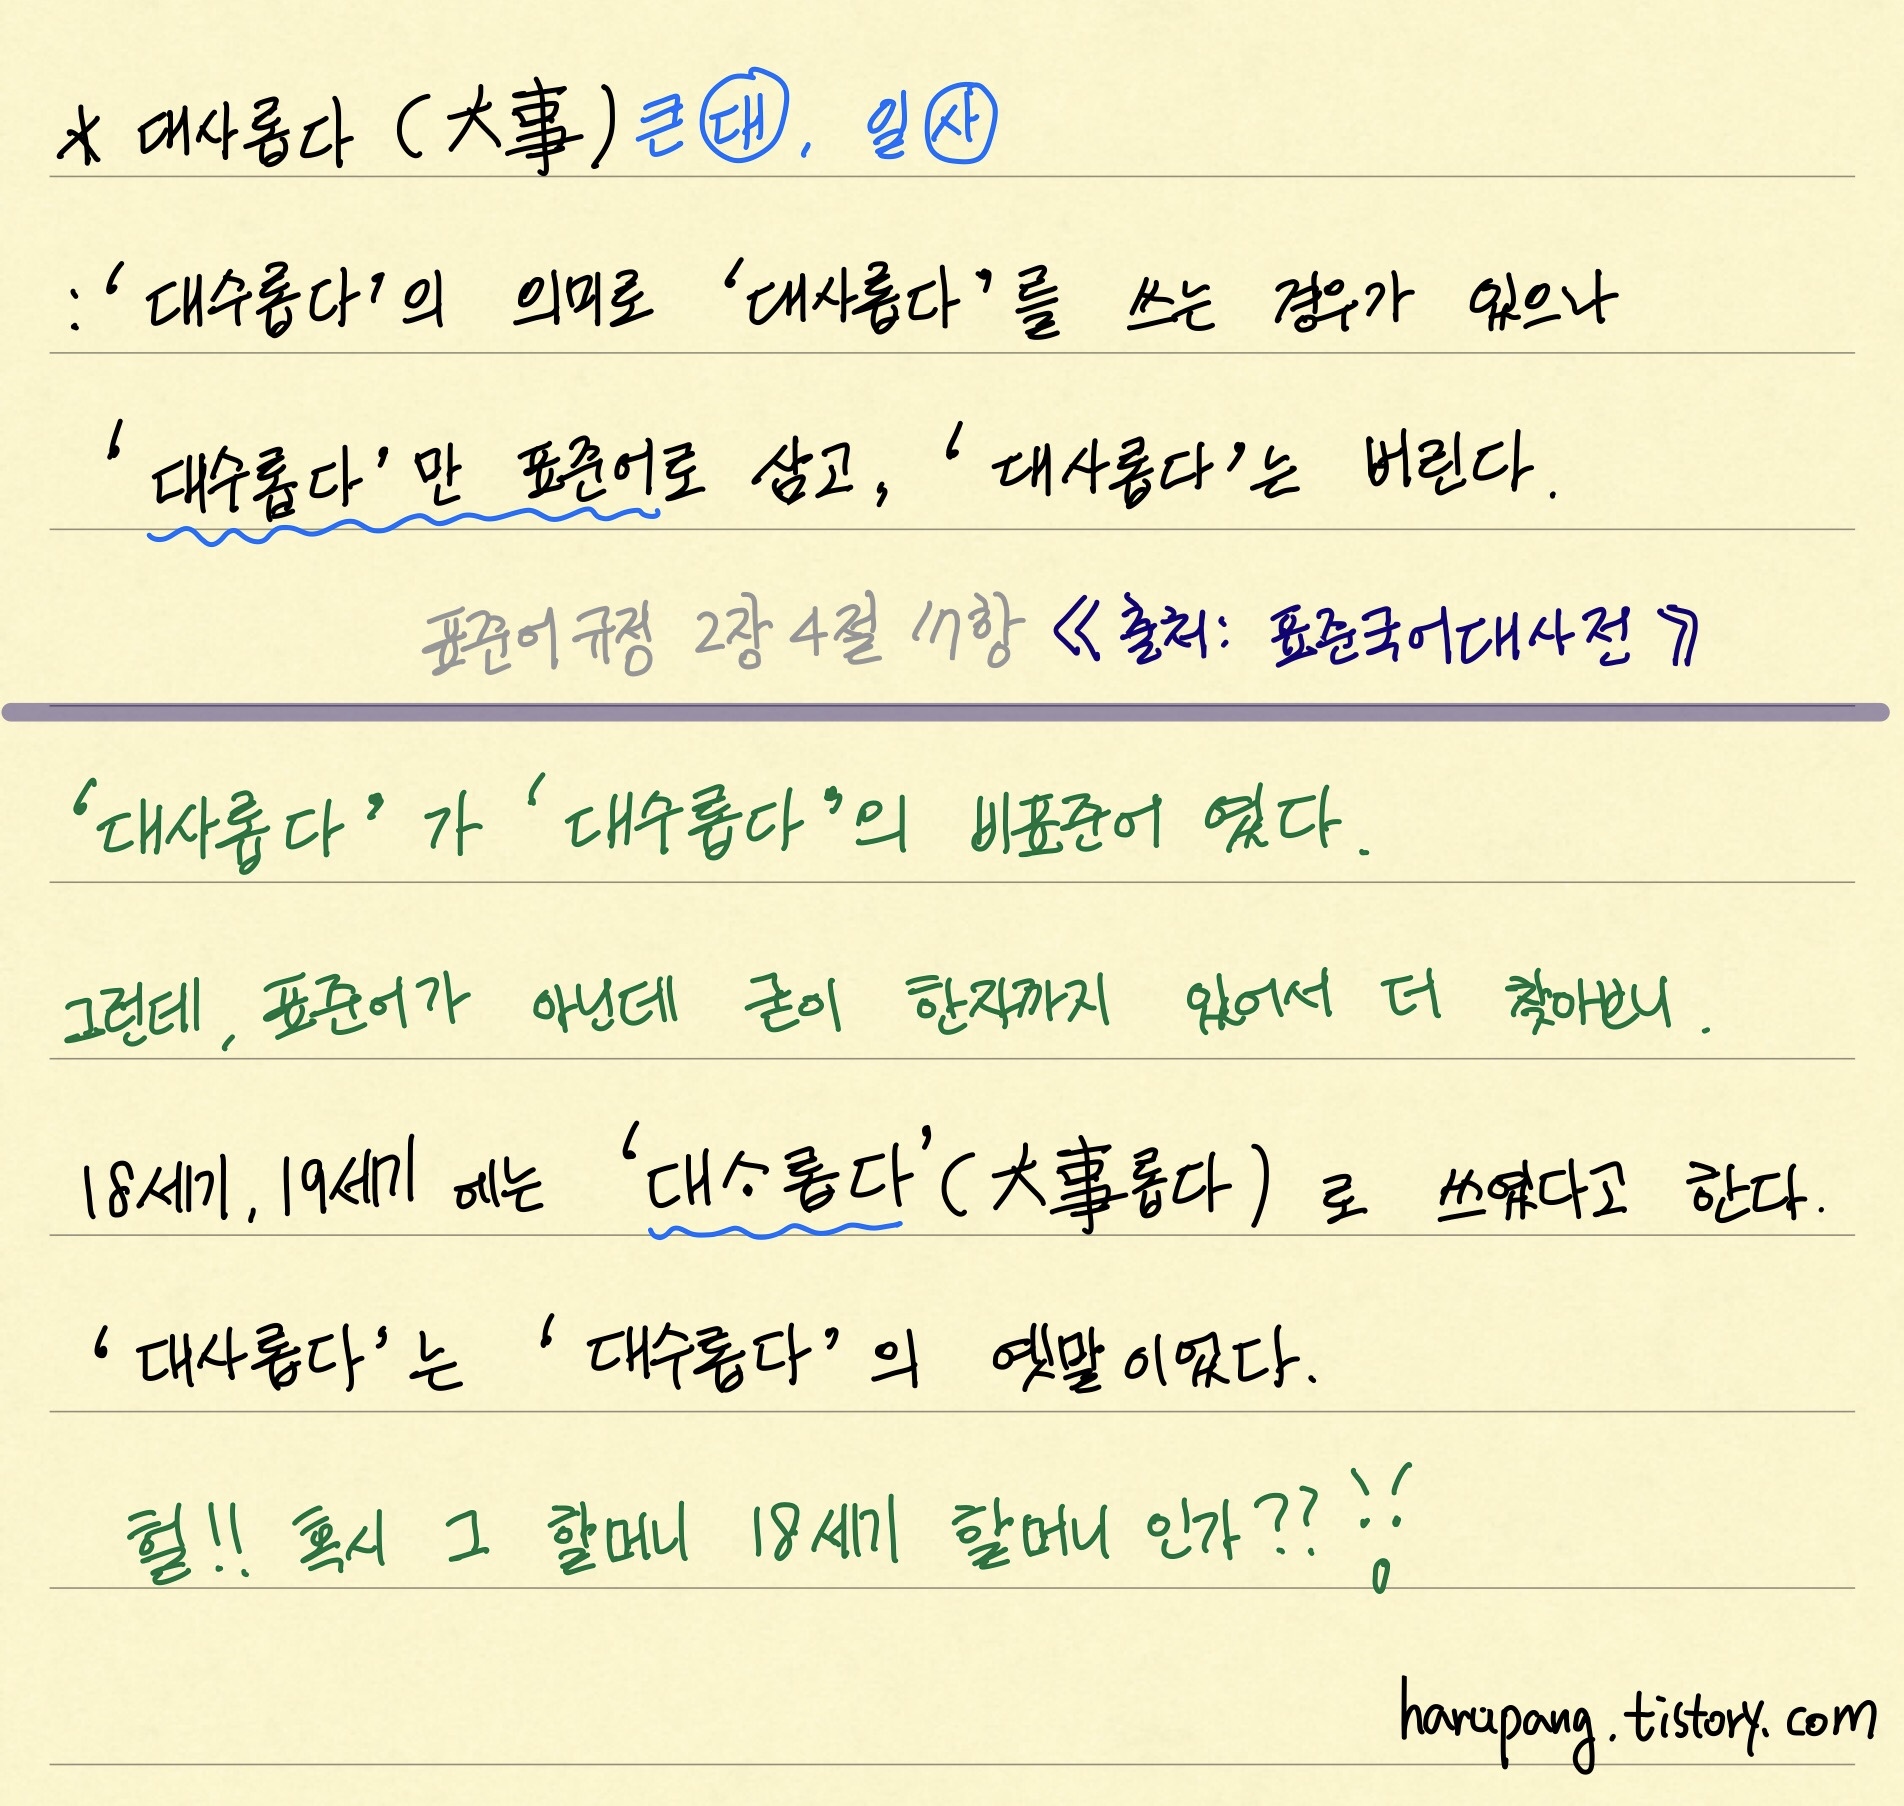 * 대사롭다 (大事) 큰 대, 일 사
: '대수롭다'의 의미로 '대사롭다'를 쓰는 경우가 있으나
'대수롭다'만 표준어로 삼고, '대사롭다'는 버린다.
표준어 규정 2장 4절 17항 《출처: 표준국어대사전》
'대사롭다'가 '대수롭다'의 비표준어 였다.
그런데, 표준어가 아닌데 굳이 한자까지 있어서 더 찾아보니.
18세기, 19세기 에는 '대ᄉᆞ롭다'(大事롭다) 로 쓰였다고 한다.
'대사롭다'는 '대수롭다'의 옛말이었다.
헐!! 혹시 그 할머니 18세기 할머니 인가??
harupang.tistory.com